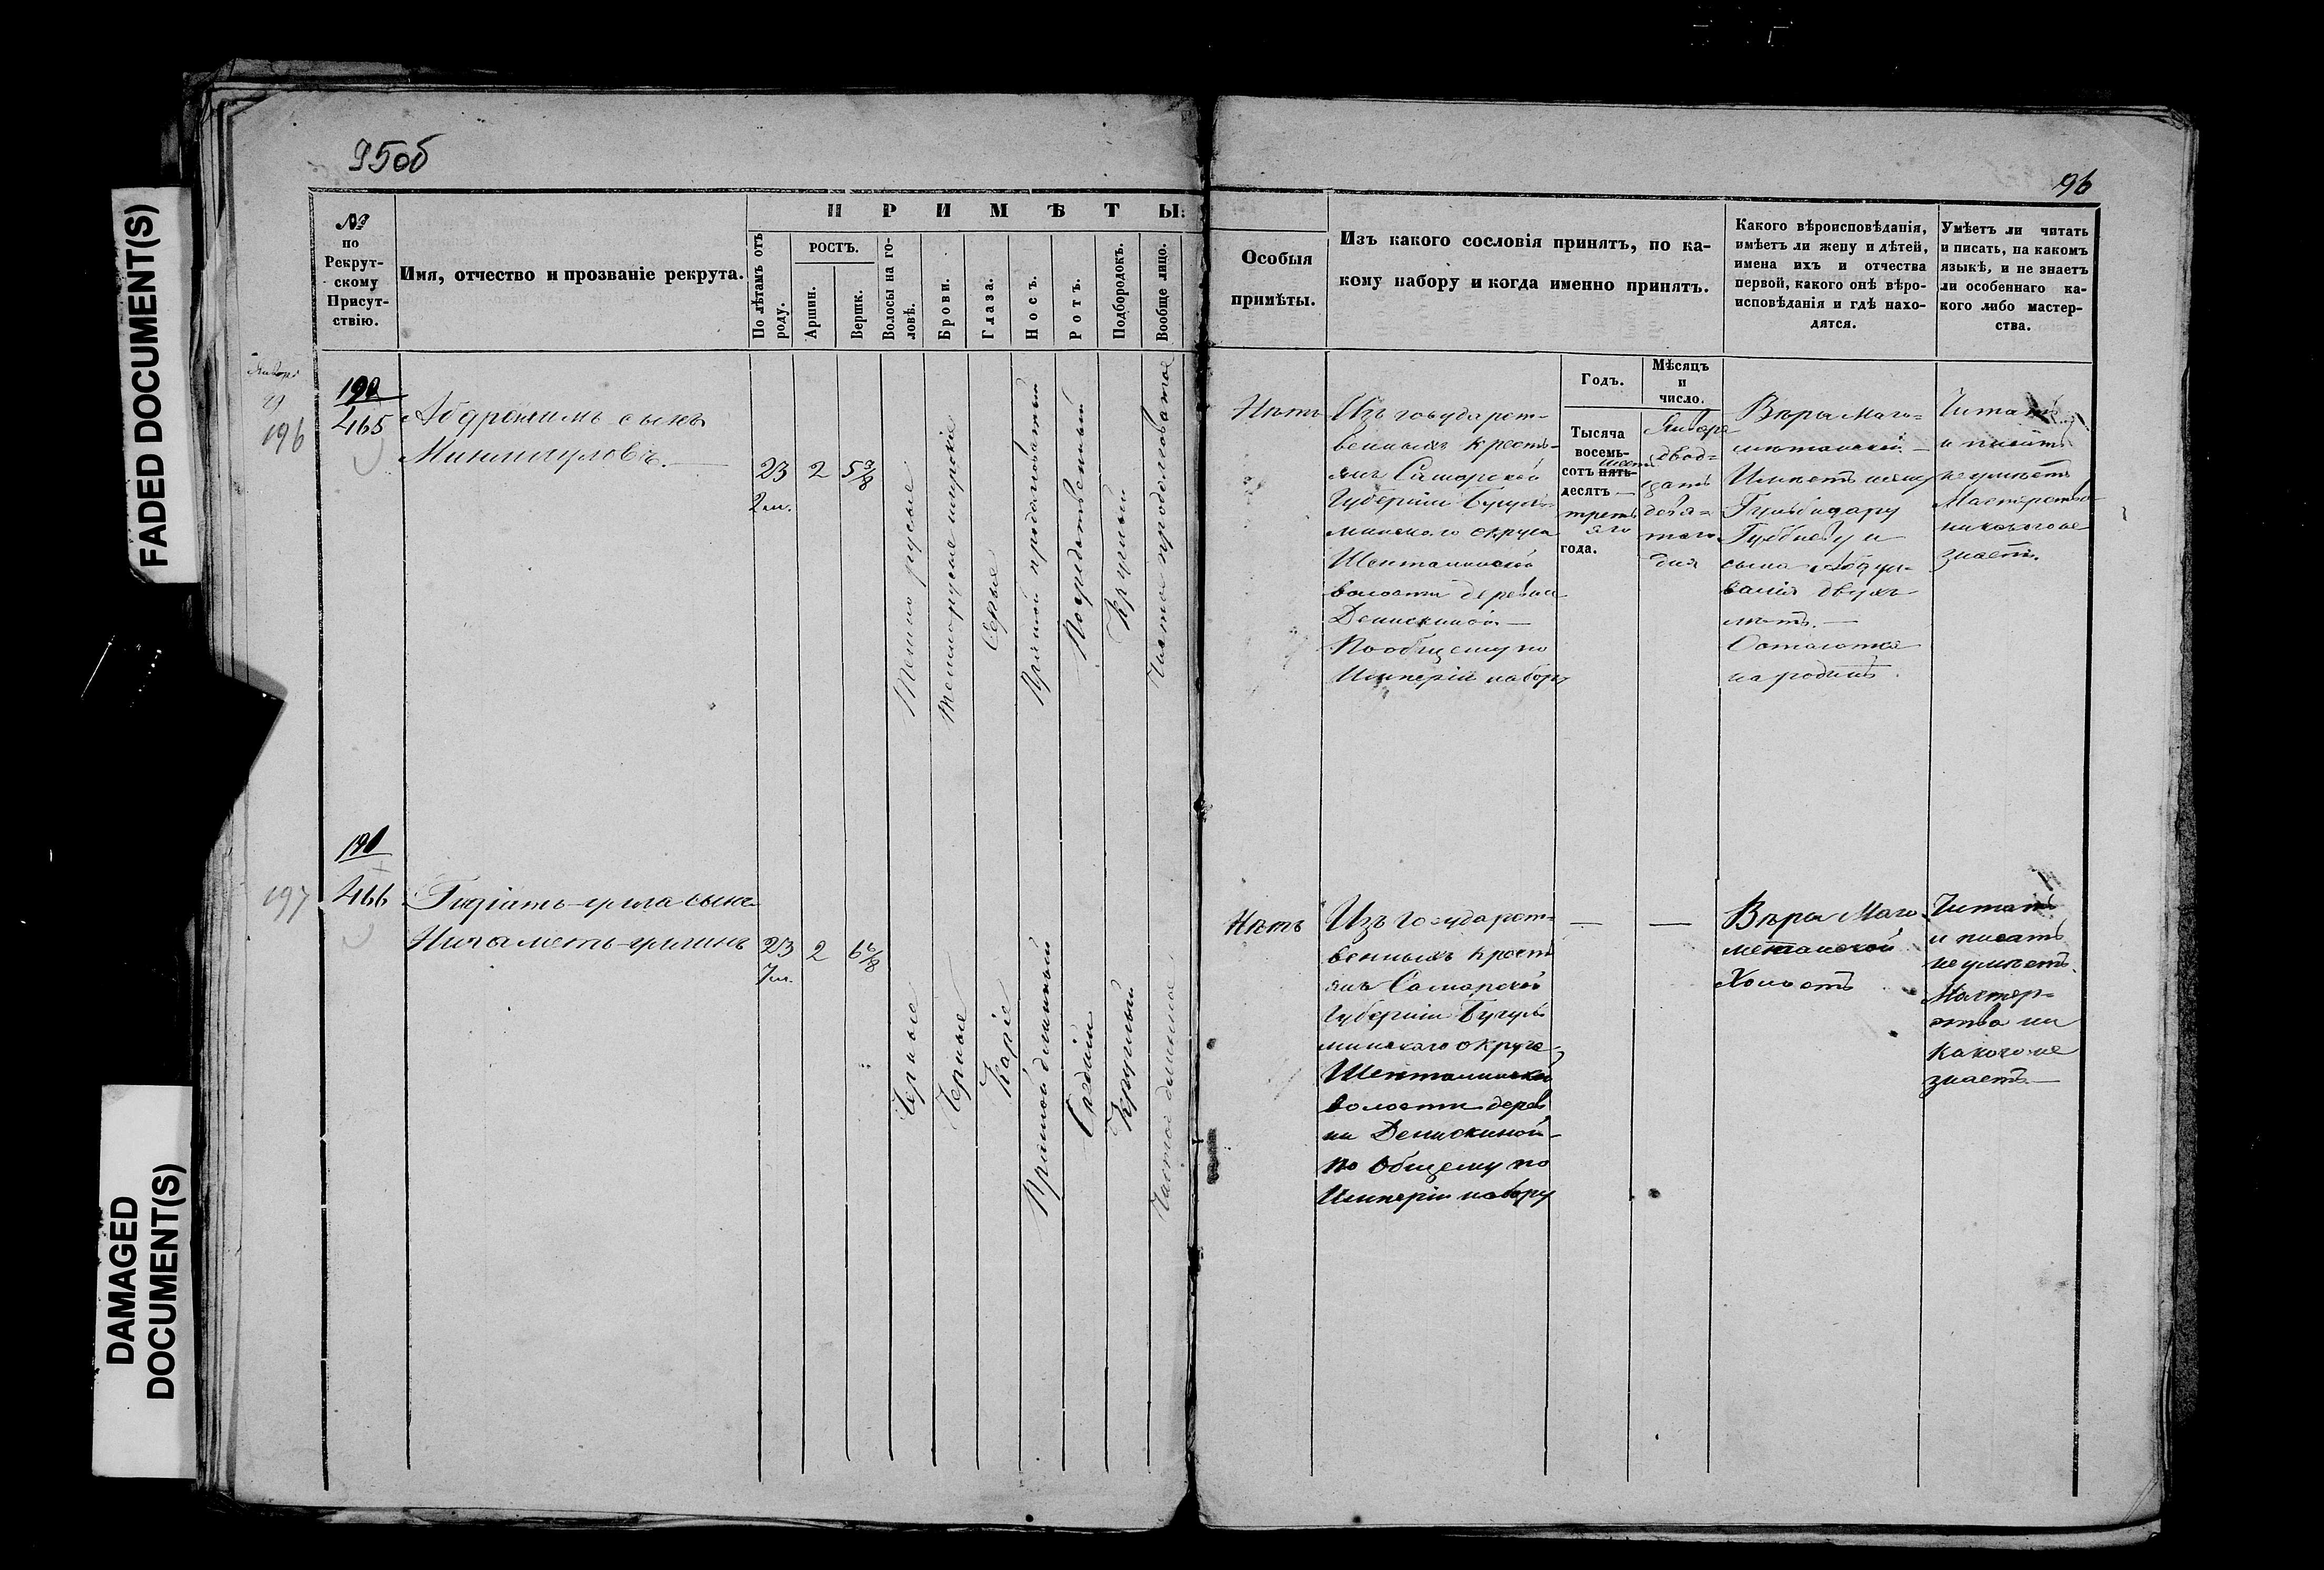 FADED DOCUMENT(S)
DAMAGED
DOCUMENT(S)
95об
96
№
по
Рекрут-
скому
Присут-
ствію.
Имя, отчество и прозваніе рекрута.
ПРИМѢТЫ:
По лѣтамъ отъ
роду.
РОСТЪ.
Аршин.
Вершк.
Волосы на го-
ловѣ.
Брови.
Глаза.
Носъ.
Ротъ.
Подбородокъ.
Вообще лицо.
Особыя
примѣты.
Изъ какого сословія принятъ, по ка-
кому набору и когда именно принятъ.
Какого вѣроисповѣданія,
имѣетъ ли жену и дѣтей,
имена ихъ и отчества
первой, какого онѣ вѣро-
исповѣданія и гдѣ нахо-
дятся.
Умѣетъ ли читать
и писать, на какомъ
языкѣ, и не знаетъ
ли особеннаго ка-
кого либо мастер-
ства.
Января
29
196
190
465
Абдрахимъ сынъ
Минлигуловъ.
23
2 м.
2
5 3/8
Темнорусые
Темнорусые широкіе
Серые
Прямой продолговатый
Посредственный
Круглый
Чистое продолговатое
Нѣтъ
Изъ государст-
венныхъ кресть-
янъ Самарской
Губерніи Бугуль-
минскаго округа
Шенталинской
волости деревни
Денискиной —
По общему по
Имперіи набору
Годъ.
Тысяча
восемь-
сотъ пять-
шесть
десятъ —
треть
яго
года.
Мѣсяцъ
и
число.
Января
двад-
цать
девя-
таго
дня
Вѣры Маго-
метанской. —
Имѣетъ жену
сына
двухъ
лѣтъ. —
Остаются
на родинѣ.
Читать
и писать
не умѣетъ
Мастерства
никакого не
знаетъ.
197
191
466
Нигаметь-уллинъ
23
7 м.
2
6 6/8
Черные
Черные
Каріе
Прямой длинный
Средній
Круглый
Чистое длинное
Нѣтъ
Изъ Государст-
венныхъ кресть
янъ Самарской
Губерніи Бугуль
минскаго округа
Шенталинской
волости дерев
ни Денискиной —
по Общему по
Имперіи набору
—
—
Вѣры Маго
метанской
Холостъ
Читать
и писать
не умѣетъ.
Мастер-
ства ни
какого не
знаетъ —